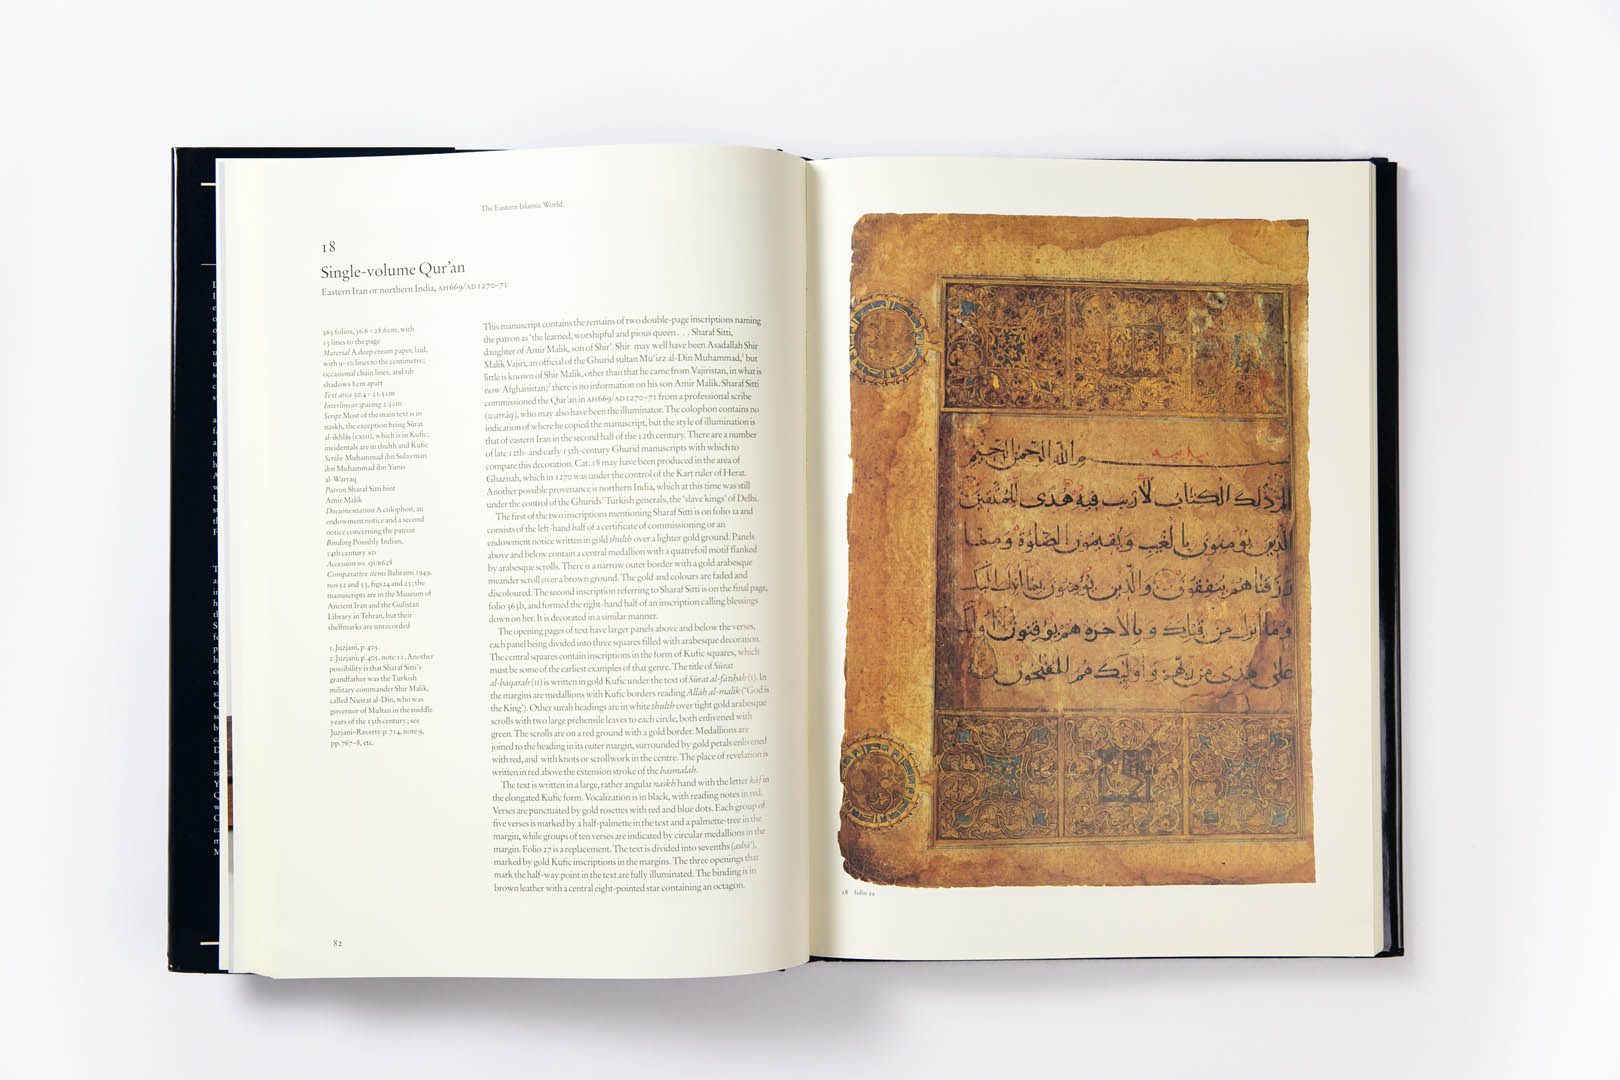 The Eastern Islamic World
18
Single-volume Qur'an
Eastern Iran or northern India, AH 669/AD 1270–71
363 folios, 36.6 × 28.6 cm, with
15 lines to the page
Material A deep cream paper, laid,
with 9–10 lines to the centimetre;
occasional chain lines, and rib
shadows 8 cm apart
Text area 30.4 × 21.5 cm
Interlinear spacing 2.5 cm
Script Most of the main text is in
naskh, the exception being Sūrat
al-ikhlāṣ (CXII), which is in Kufic;
incidentals are in thulth and Kufic
Scribe Muhammad ibn Sulayman
ibn Muhammad ibn Yunis
al-Warraq
Patron Sharaf Sitti bint
Amir Malik
Documentation A colophon, an
endowment notice and a second
notice concerning the patron
Binding Possibly Indian,
14th century AD
Accession no. QUR628
Comparative items Bahrami 1949,
nos 52 and 53, figs 24 and 25; the
manuscripts are in the Museum of
Ancient Iran and the Gulistan
Library in Tehran, but their
shelfmarks are unrecorded
1. Juzjani, p.405.
2. Juzjani, p.405, note 12. Another
possibility is that Sharaf Sitti's
grandfather was the Turkish
military commander Shir Malik,
called Nusrat al-Din, who was
governor of Multan in the middle
years of the 13th century; see
Juzjani–Raverty p.714, note 9,
pp.767–8, etc.
This manuscript contains the remains of two double-page inscriptions naming
the patron as 'the learned, worshipful and pious queen . . . Sharaf Sitti,
daughter of Amir Malik, son of Shir'. Shir may well have been Asadallah Shir
Malik Vajiri, an official of the Ghurid sultan Mu'izz al-Din Muhammad,¹ but
little is known of Shir Malik, other than that he came from Vajiristan, in what is
now Afghanistan;² there is no information on his son Amir Malik. Sharaf Sitti
commissioned the Qur'an in AH 669/AD 1270–71 from a professional scribe
(warrāq), who may also have been the illuminator. The colophon contains no
indication of where he copied the manuscript, but the style of illumination is
that of eastern Iran in the second half of the 12th century. There are a number
of late 12th- and early 13th-century Ghurid manuscripts with which to
compare this decoration. Cat. 18 may have been produced in the area of
Ghaznah, which in 1270 was under the control of the Kart ruler of Herat.
Another possible provenance is northern India, which at this time was still
under the control of the Ghurids' Turkish generals, the 'slave kings' of Delhi.
The first of the two inscriptions mentioning Sharaf Sitti is on folio 1a and
consists of the left-hand half of a certificate of commissioning or an
endowment notice written in gold thulth over a lighter gold ground. Panels
above and below contain a central medallion with a quatrefoil motif flanked
by arabesque scrolls. There is a narrow outer border with a gold arabesque
meander scroll over a brown ground. The gold and colours are faded and
discoloured. The second inscription referring to Sharaf Sitti is on the final page,
folio 363b, and formed the right-hand half of an inscription calling blessings
down on her. It is decorated in a similar manner.
The opening pages of text have larger panels above and below the verses,
each panel being divided into three squares filled with arabesque decoration.
The central squares contain inscriptions in the form of Kufic squares, which
must be some of the earliest examples of that genre. The title of Sūrat
al-baqarah (II) is written in gold Kufic under the text of Sūrat al-fātiḥah (I). In
the margins are medallions with Kufic borders reading Allāh al-malik ('God is
the King'). Other surah headings are in white thulth over tight gold arabesque
scrolls with two large prehensile leaves to each circle, both enlivened with
green. The scrolls are on a red ground with a gold border. Medallions are
joined to the heading in its outer margin, surrounded by gold petals enlivened
with red, and with knots or scrollwork in the centre. The place of revelation is
written in red above the extension stroke of the basmalah.
The text is written in a large, rather angular naskh hand with the letter kāf in
the elongated Kufic form. Vocalization is in black, with reading notes in red.
Verses are punctuated by gold rosettes with red and blue dots. Each group of
five verses is marked by a half-palmette in the text and a palmette-tree in the
margin, while groups of ten verses are indicated by circular medallions in the
margin. Folio 27 is a replacement. The text is divided into sevenths (asbāʿ),
marked by gold Kufic inscriptions in the margins. The three openings that
mark the half-way point in the text are fully illuminated. The binding is in
brown leather with a central eight-pointed star containing an octagon.
82
بسم الله الرحمن الرحيم
الم ذلك الكتاب لا ريب فيه هدى للمتقين
الذين يؤمنون بالغيب ويقيمون الصلوة ومما
رزقناهم ينفقون والذين يؤمنون بما انزل اليك
وما انزل من قبلك وبالاخرة هم يوقنون اولئك
على هدى من ربهم واوليك هم المفلحون
18 folio 2a